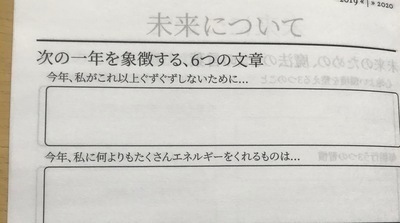 2019 « | » 2020
未来について
次の一年を象徴する、6つの文章
今年、私がこれ以上ぐずぐずしないために…
今年、私に何よりもたくさんエネルギーをくれるものは…